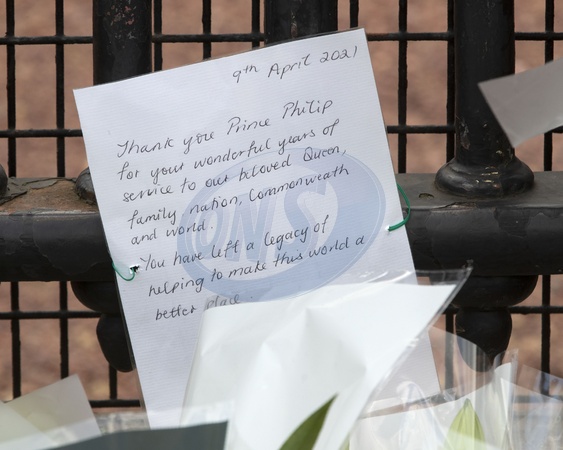 9th April 2021
Thank you Prince Philip
for your wonderful years of
service to our beloved Queen,
family, nation, Commonweath
and world.
You have left a legacy of
helping to make this world a
better place.
ONS